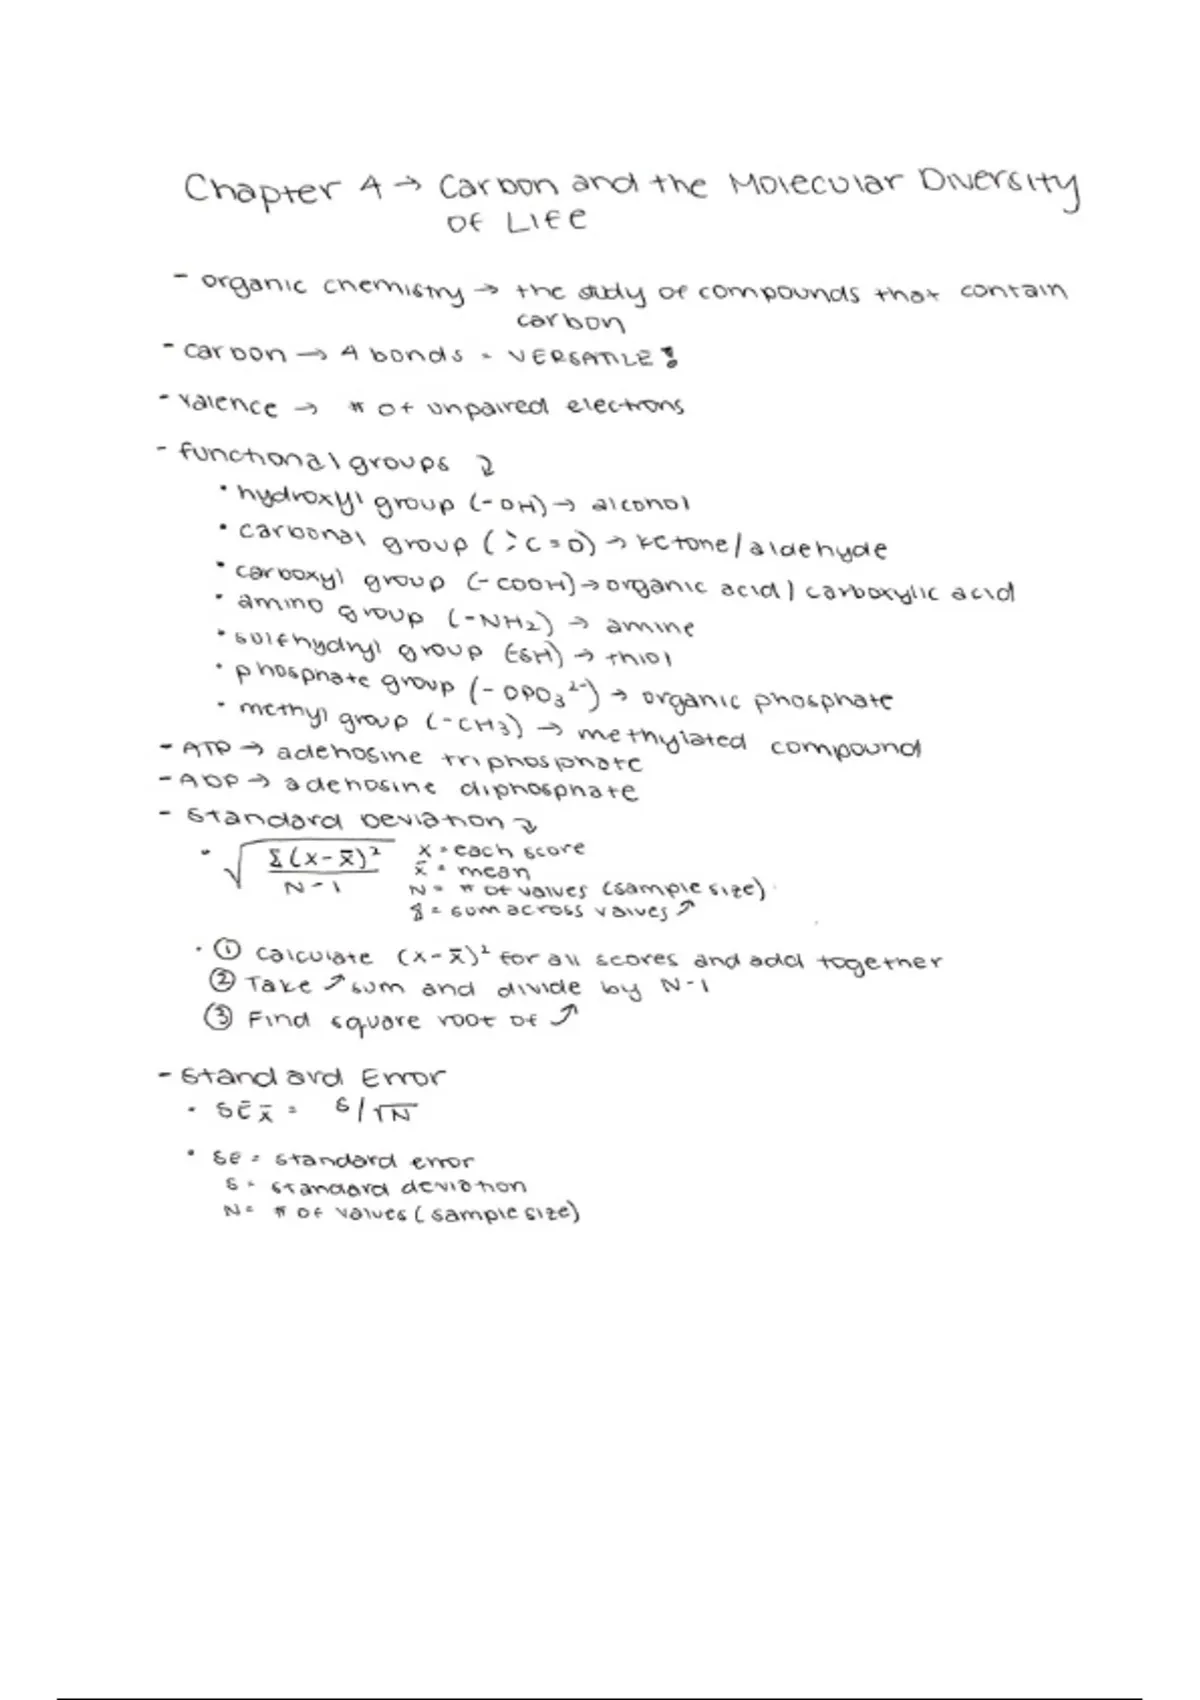 Chapter 4 → Carbon and the Molecular Diversity
of Life
- organic chemistry → the study of compounds that contain
carbon
- carbon → 4 bonds = VERSATILE!
- valence → # of unpaired electrons
- functional groups ↓
• hydroxyl group (-OH) → alcohol
• carbonal group (>C=O) → ketone/aldehyde
• carboxyl group (-COOH) → organic acid/carboxylic acid
• amino group (-NH₂) → amine
• sulfhydryl group (-SH) → thiol
• phosphate group (-OPO₃²⁻) → organic phosphate
• methyl group (-CH₃) → methylated compound
- ATP → adenosine triphosphate
- ADP → adenosine diphosphate
- Standard Deviation ↓
• √ Σ(x-x̄)² / N-1
x = each score
x̄ = mean
N = # of values (sample size)
Σ = sum across values ↗
• ① Calculate (x-x̄)² for all scores and add together
② Take ↗ sum and divide by N-1
③ Find square root of ↗
- Standard Error
• SE x̄ = s/√N
• se = standard error
s = standard deviation
N = # of values (sample size)